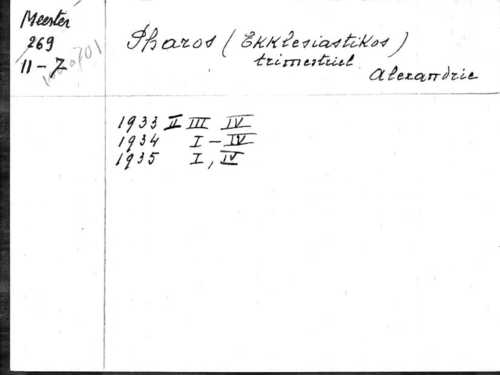 Meester
269
II-7
Pharos (Ekklesiastikos)
trimestriel
Alexandrie
1933 II III IV
1934 I - IV
1935 I, IV